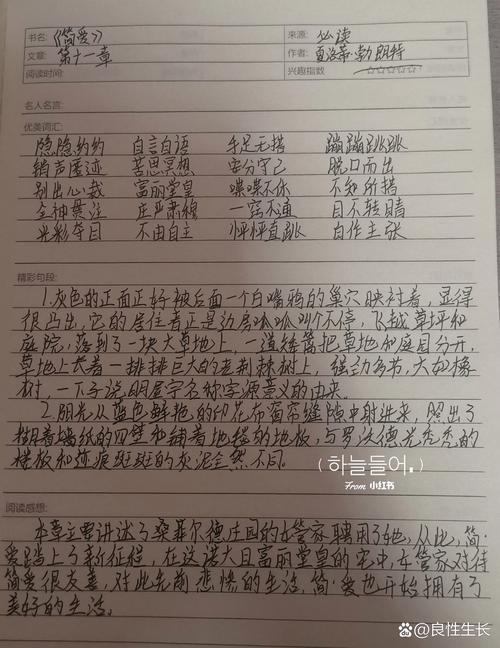 书名：《简爱》
来源：必读
文章：第十一章
作者：夏洛蒂·勃朗特
阅读时间：
兴趣指数 ☆☆☆☆☆
名人名言：
优美词汇：
隐隐约约 自言自语 手足无措 蹦蹦跳跳
销声匿迹 苦思冥想 安分守己 脱口而出
别出心裁 富丽堂皇 喋喋不休 不知所措
全神贯注 庄严肃穆 一窍不通 目不转睛
光彩夺目 不由自主 怦怦直跳 自作主张
精彩句段：
1.灰色的正面正好被后面一个白嘴鸦的巢穴映衬着，显得
很凸出，它的居住者正是边房呱呱叫个不停，飞越草坪和
庭院，落到了一块大草地上，一道矮篱把草地和庭园分开，
草地上长着一排排巨大的老荆棘树上，强劲多节，大如橡
树，一下子说明屋宇名称字源意义的由来。
2.阳光从蓝色鲜艳的印花布窗帘缝隙中射进来，照出了
糊着墙纸的四壁和铺着地毯的地板，与罗沃德光秃秃的
楼板和迹痕斑斑的灰泥全然不同。
(하늘들어.)
From 小红书
阅读感想：
本章主要讲述了桑菲尔德庄园的女管家聘用了她，从此，简·
爱踏上了新征程，在这诺大且富丽堂皇的宅中，女管家对待
简爱很友善，对此先前悲惨的生活，简·爱也开始拥有了
美好的生活。
良性生长